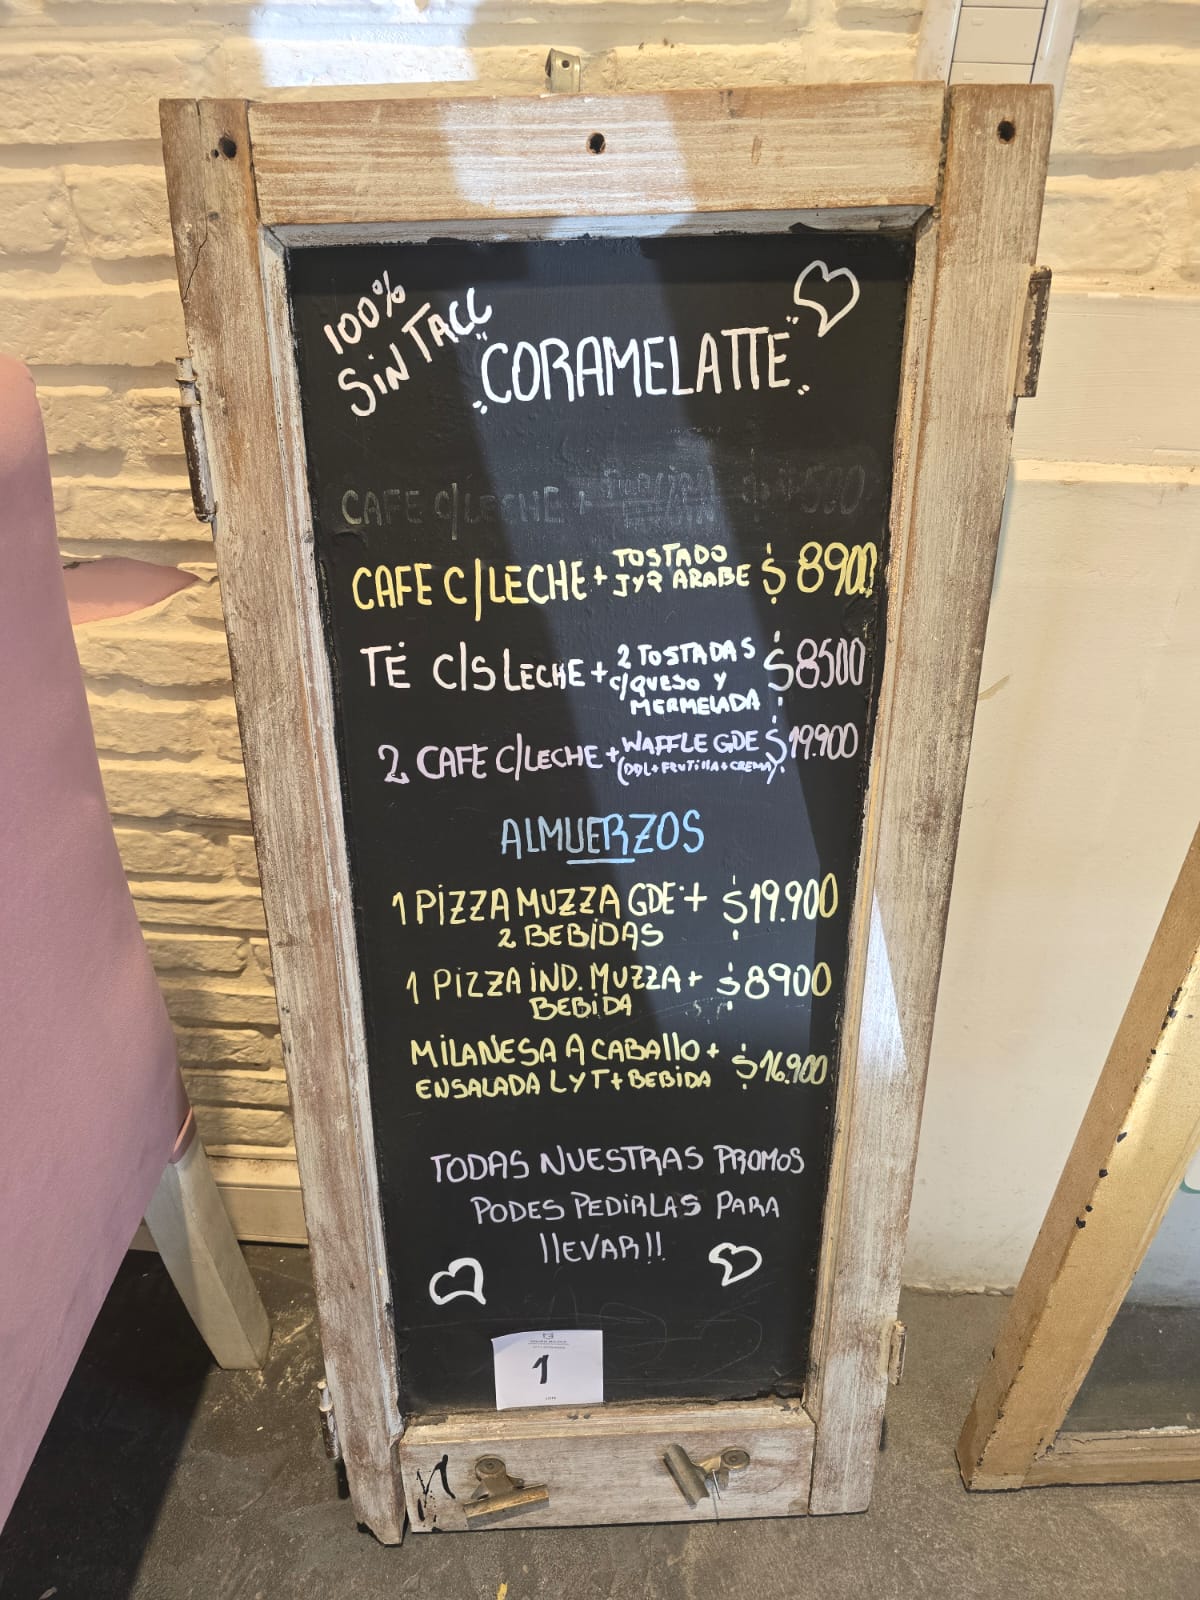 100%
SIN TACC
"CORAMELATTE"
CAFE C/LECHE +
CAFE C/LECHE + TOSTADO $ 8900
JYQ ARABE
TÉ C/S LECHE + 2 TOSTADAS $8500
C/QUESO Y
MERMELADA
2 CAFE C/LECHE + WAFFLE GDE $19.900
(DDL+FRUTILLA+CREMA)
ALMUERZOS
1 PIZZA MUZZA GDE + $19.900
2 BEBIDAS
1 PIZZA IND. MUZZA + $8900
BEBIDA
MILANESA A CABALLO + $16.900
ENSALADA L Y T + BEBIDA
TODAS NUESTRAS PROMOS
PODES PEDIRLAS PARA
LLEVAR!!
1